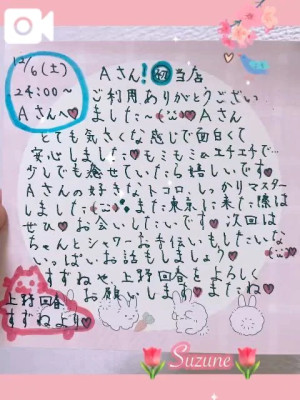 12/6(土)
24:00〜
Aさんへ♥
Aさん!初当店
ご利用ありがとうござい
ました〜♥Aさん
とても気さくな感じで面白くて
安心しました♥もミもミもエチエチで…
少しでも癒せていたら嬉しいです♥
Aさんの好きなトコロ、しっかりマスター
しました また東京に来た際は
ぜひ♥お会いしたいです♥次回は
ちゃんとシャワーお手伝いもしたいな
いっぱいお話もしましょう♥
すずねや、上野回春をよろしく
お願いします♥またね♥
上野回春
すずねより♥
Suzune